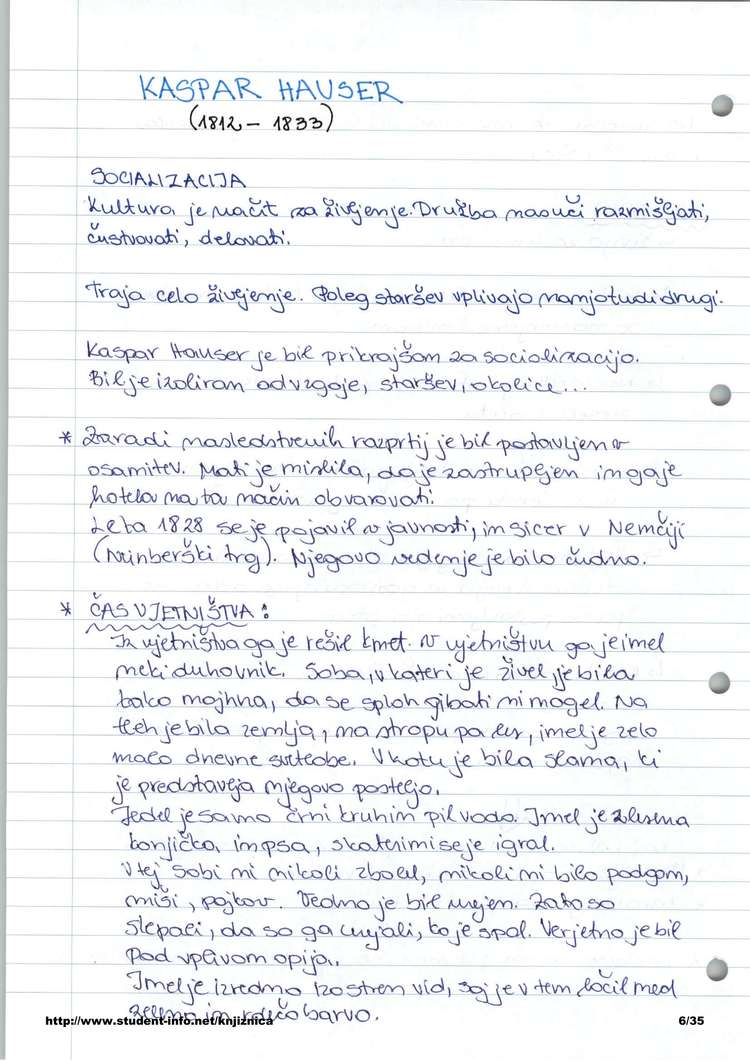 KASPAR HAUSER
(1812 – 1833)
SOCIALIZACIJA
Kultura je način za življenje. Družba nas uči razmišljati,
čustvovati, delovati.
Traja celo življenje. Poleg staršev vplivajo namjo tudi drugi.
Kaspar Hauser je bil prikrajšam za socializacijo.
Bil je izoliran od vzgoje, staršev, okolice...
* Zaradi nasledstvenih razprtij je bil postavljen v
osamitev. Mati je mislila, da je zastrupljen in ga je
hotela na ta način obvarovati.
Leta 1828 se je pojavil v javnosti, in sicer v Nemčiji
(Nürnberški trg). Njegovo vedenje je bilo čudno.
* ČAS UJETNIŠTVA:
Iz ujetništva ga je rešil kmet. V ujetništvu ga je imel
neki duhovnik. Soba, v kateri je živel, je bila
tako majhna, da se sploh gibati ni mogel. Na
tleh je bila zemlja, na stropu pa les, imel je zelo
malo dnevne svetlobe. V kotu je bila slama, ki
je predstavlja njegovo posteljo.
Jedel je samo črni kruh in pil vodo. Imel je 2 lesena
konjička in psa, s katerimi se je igral.
V tej sobi ni nikoli zbolel, nikoli ni bilo podgan,
miši, pajkov. Vedno je bil umjen. Zato so
slepali, da so ga umjali, ko je spal. Verjetno je bil
pod vplivom opija..
Imel je izredno izostren vid, saj je v temi ločil med
zeleno in rdečo barvo.
http://www.student-info.net/knjiznica
6/35